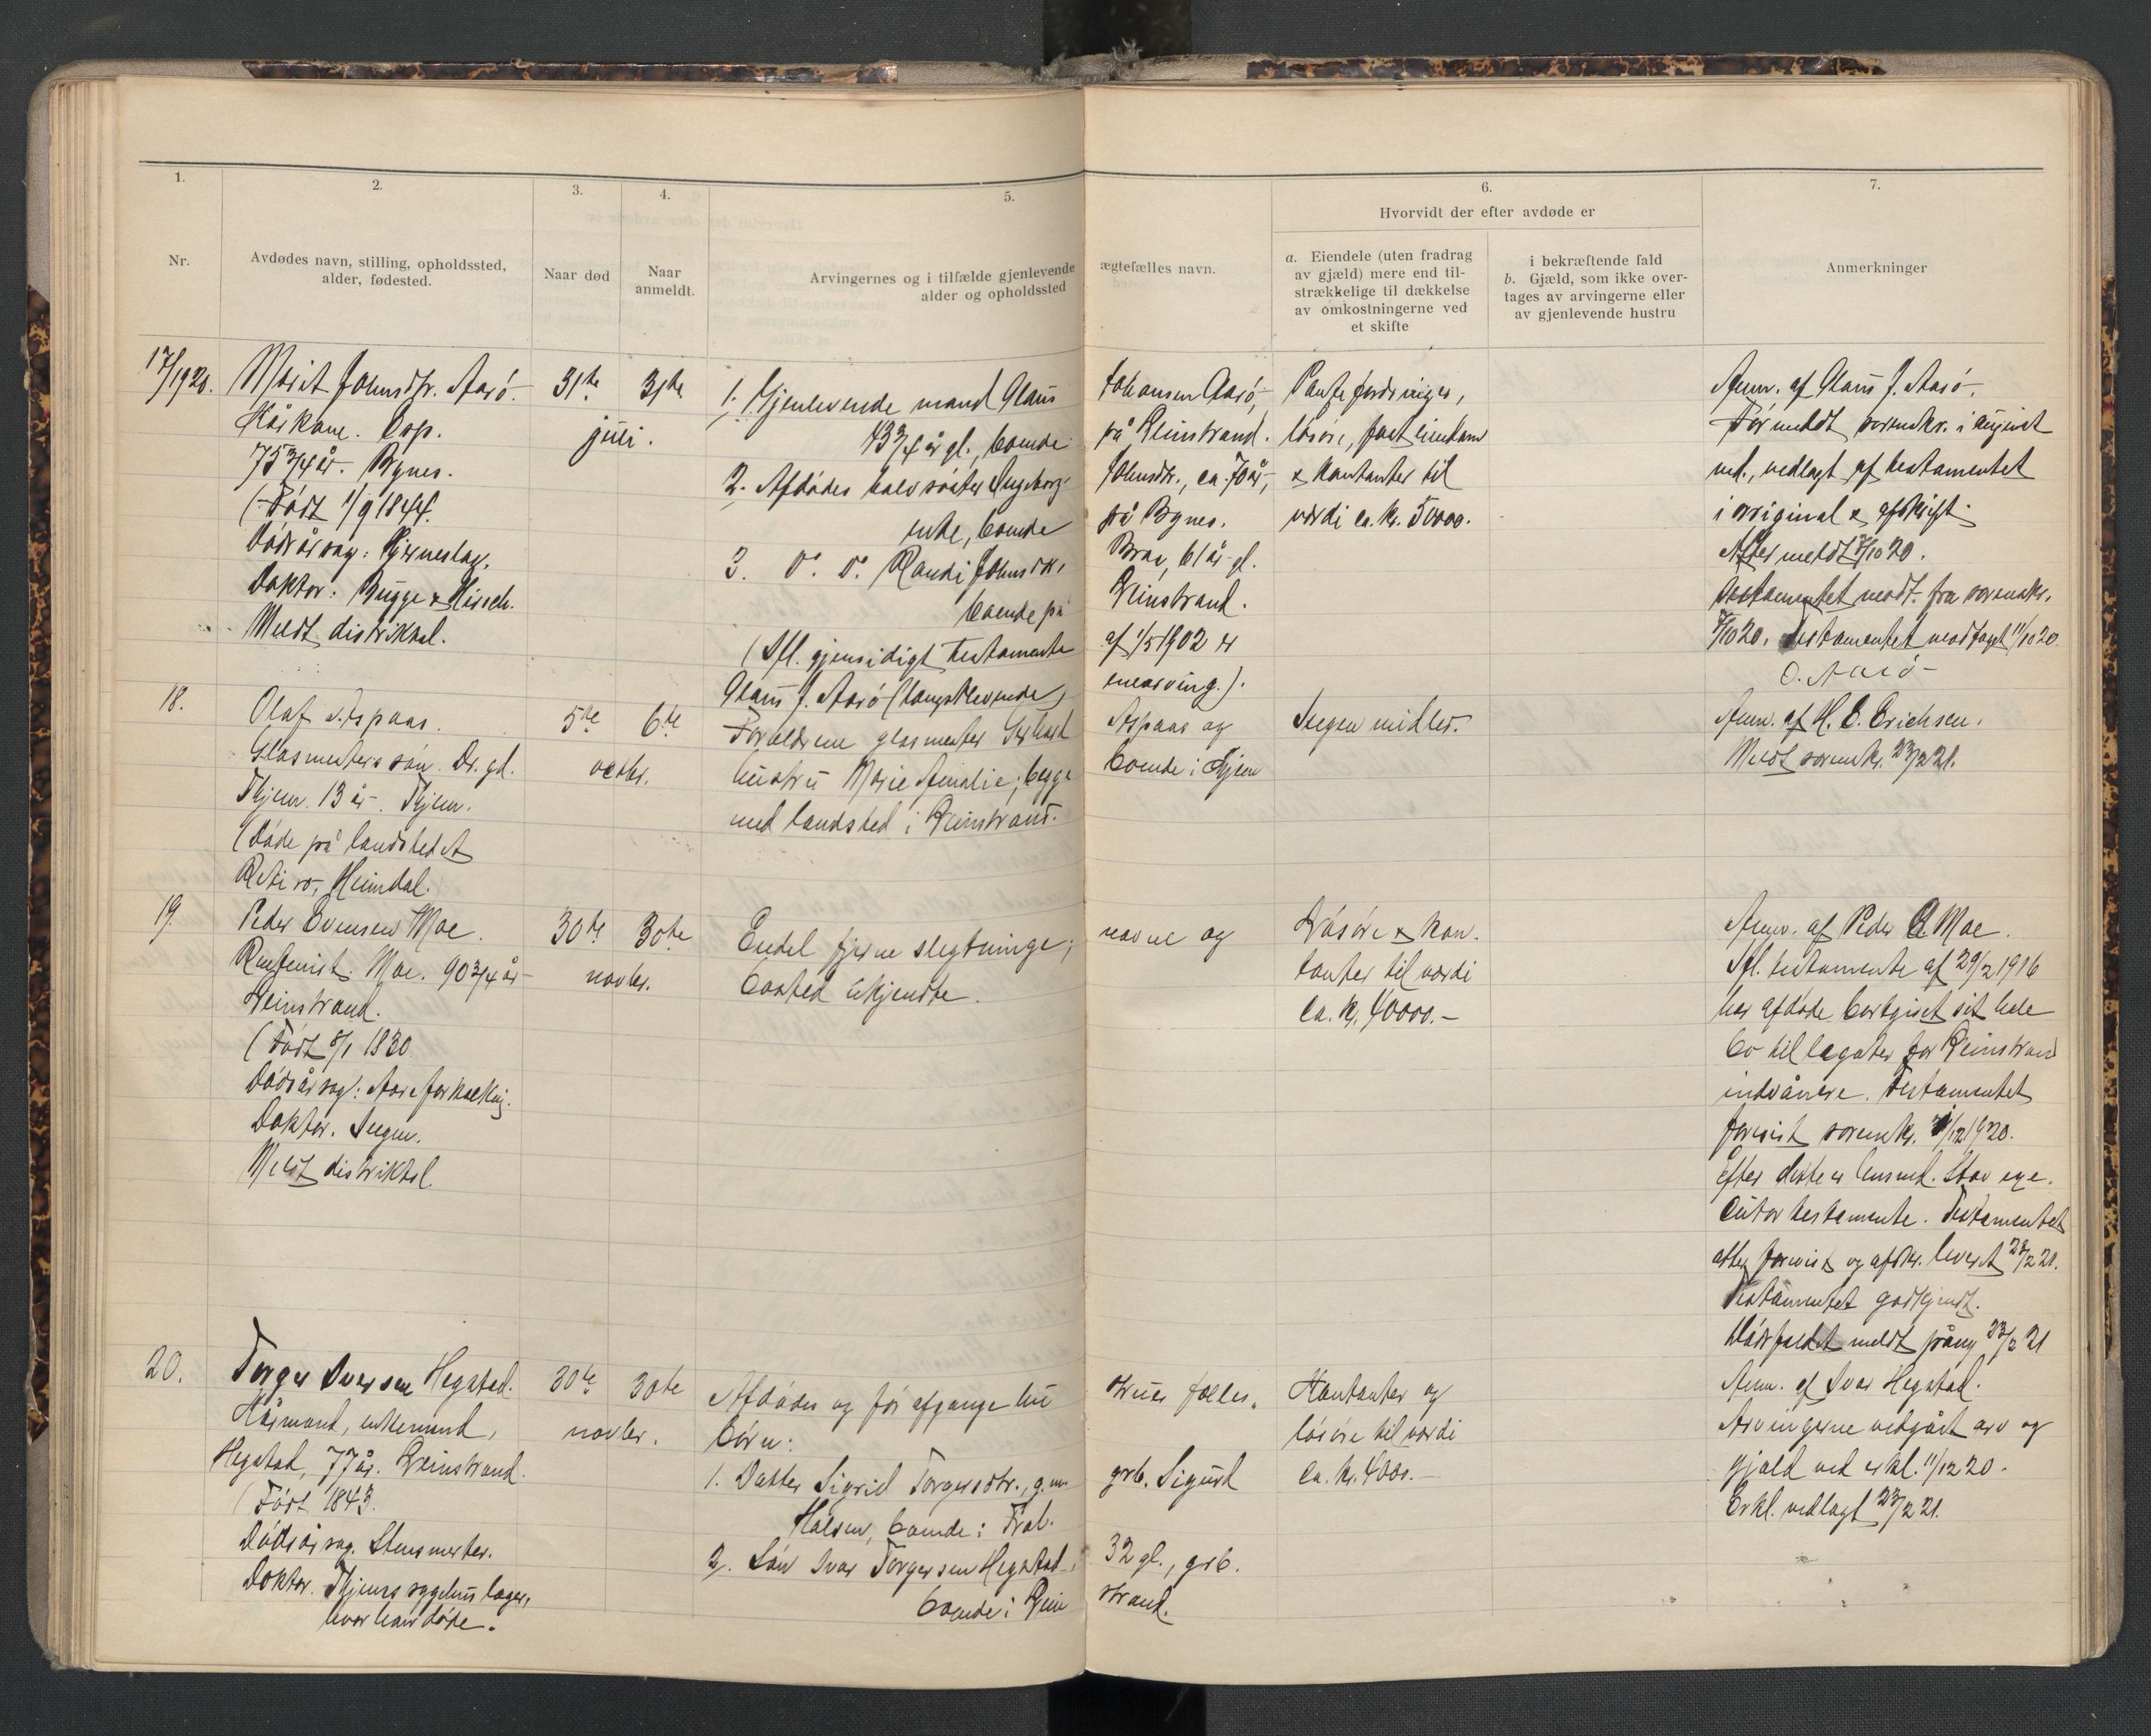 1.
2.
3.
4.
5.
6.
7.
Nr.
Avdødes navn, stilling, opholdssted,
alder, fødested.
Naar død
Naar
anmeldt.
Arvingernes og i tilfælde gjenlevende ægtefælles navn.
alder og opholdssted
Hvorvidt der efter avdøde er
a. Eiendele (uten fradrag
av gjæld) mere end til-
strækkelige til dækkelse
av omkostningerne ved
et skifte
i bekræftende fald
b. Gjæld, som ikke over-
tages av arvingerne eller
av gjenlevende hustru
Anmerkninger
17/1920.
Marit Johnsdtr. Aasø.
Kårkone. Osp.
75 3/4 år. Bynes.
(Født 1/9 1844.
Dødsårsag: Hjerneslag.
Doktor: Bugge & Hirsch.
Meldt distriktsl.
31te
31te
juli.
1. Gjenlevende mand Claus Johansen Aasø,
73 3/4 år gl., boende på Leinstrand.
2. Afdødes halvsøster Ingeborg Johnsdtr., ca. 70 år,
enke, boende på Bynes.
3. Do. Do. Randi Johnsdtr. Braa, 61 år gl.
boende på Leinstrand.
(Ifl. gjensidigt testamente af 1/5 1902 er
Claus J. Aasø (længstlevende) enearving.).
Pantefordringer,
løsøre, fast eiendom
& kontanter til
værdi ca. kr. 50000.
Anm. af Claus J. Aasø.
Før meldt sorenskr. i august
md., vedlagt af testamentet
i original & afskrift.
Atter meldt /10 20.
Testamentet modt. fra sorenskr.
/10 20. Testamentet modtaget 11/10 20.
C. Aasø
18.
Olaf Aspaas.
Glasmesters søn. Dr. gd.
Thjem. 13 år. Thjem.
(Døde på landstedet
Retiro, Heimdal.
5te
6te
octbr.
Forældrene glasmester Gerhard Aspaas og
hustru Marie Amalie; begge boende i Thjem
med landsted i Leinstrand.
Ingen midler.
Anm. af H. E. Erichsen.
Meldt sorenskr. 23/2 21.
19.
Peder Evensen Moe.
Rentenist. Moe. 90 3/4 år
Leinstrand.
(Født 5/1 1830
Dødsårsag: Aareforkalkng.
Doktor. Ingen.
Meldt distriktsl.
30te
30te
novbr.
Endel fjerne slegtninge; navne og
bosted ukjendte.
Løsøre & kon-
tanter til værdi
ca. kr. 40000.-
Anm. af Peder E. Moe.
Ifl. testamente af 29/2 1916
har afdøde bortgivet sit hele
bo til legater for Leinstrand
indvånere. Testamentet
forevist sorenskr. /12 1920.
Efter dette er lensmd. Stav exe-
cutor testamente. Testamentet
atter forevist og afskr. leveret 23/2 21.
Testamentet godkjendt.
Dødsfaldet meldt påny 23/2 21
20.
Torger Iversen Hegstad.
Kårmand, enkemand,
Hegstad, 77 år. Leinstrand.
(Født 1843.
Dødsårsag. Stensmerter.
Doktor. Thjems sygehus læger,
hvor han døde.
30te
30te
novbr.
Afdødes og før afgangne hustrues fælles
børn:
1. Datter Sigrid Torgersdtr., g.m. grb. Sigurd
Halsen, boende i
2. Søn Ivar Torgersen Hegstad. 32 gl., grb.
boende i Leinstrand.
Kontanter og
løsøre til værdi
ca. kr. 4000.-
Anm. af Ivar Hegstad.
Arvingerne vedgåt arv og
gjæld ved erkl. 11/12 20.
Erkl. vedlagt 23/2 21.